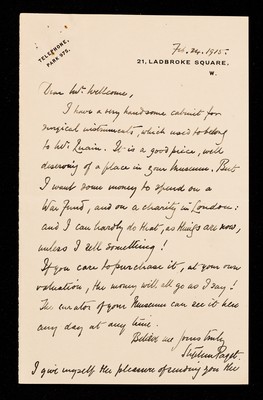 TELEPHONE,
PARK 975.
Feb. 24. 1915.
21, LADBROKE SQUARE,
W.
Dear Mr. Wellcome,
I have a very handsome cabinet for
surgical instruments, which used to belong
to Mr. Quain. It is a good piece, well
deserving of a place in your Museum. But
I want some money to spend on a
War Fund, and on a charity in London:
and I can hardly do that, as things are now,
unless I sell something!
If you care to purchase it, at your own
valuation, the money will all go as I say!
The curator of your Museum can see it here
any day at any time.
Believe me yours truly,
Stephen Paget.
I give myself the pleasure of sending you the